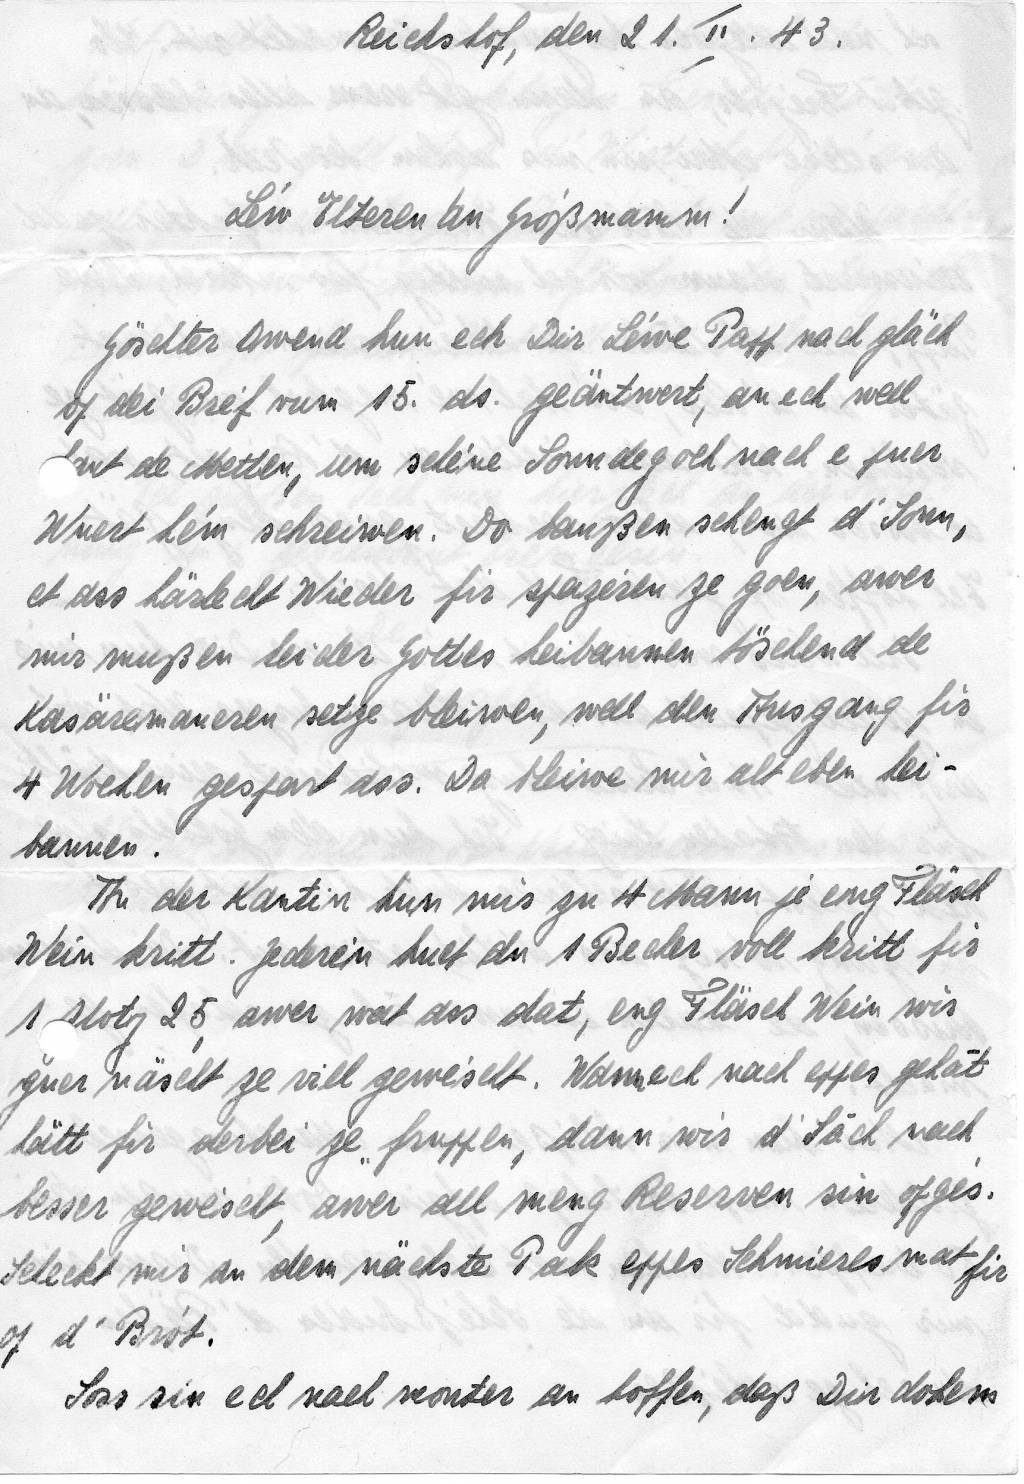 Reichshof, den 21. II. 43.
Léiw Elteren an Gróßmamm!
Göschter Owend hun ech Dir Léiwe Papp nach gläch
op dei Bréf vum 15. ds. geäntwert, an ech well
haut de Metten, um schéine Sonndeg och nach e puer
Wuert hém schreiwen. Do baußen schengt d'Sonn,
et ass härlecht Wieder fir spazéren ze goen, awer
mir mußen leider Gottes heibannen höschend de
Kasäremaueren setze bleiwen, well den Ausgang fir
4 Wochen gespart ass. Da bleiwe mir alt eben hei-
bannen.
An der Kantin hun mir zu 4 Mann je eng Fläsch
Wein kritt. Jederéin huet du 1 Becher voll kritt fir
1 Sloty 25, awer wat ass dat, eng Fläsch Wein wir
guer näscht ze vill gewéscht. Wann ech nach eppes gehat
hätt fir derbei ze fruppen, dann wir d'Säch nach
besser gewéscht, awer all meng Reserven sin opgés.
Scheckt mir an dem nächste Pak eppes Schmieres mat fir
op d'Brót.
Soss sin ech nach monter an hoffen, daß Dir dohem